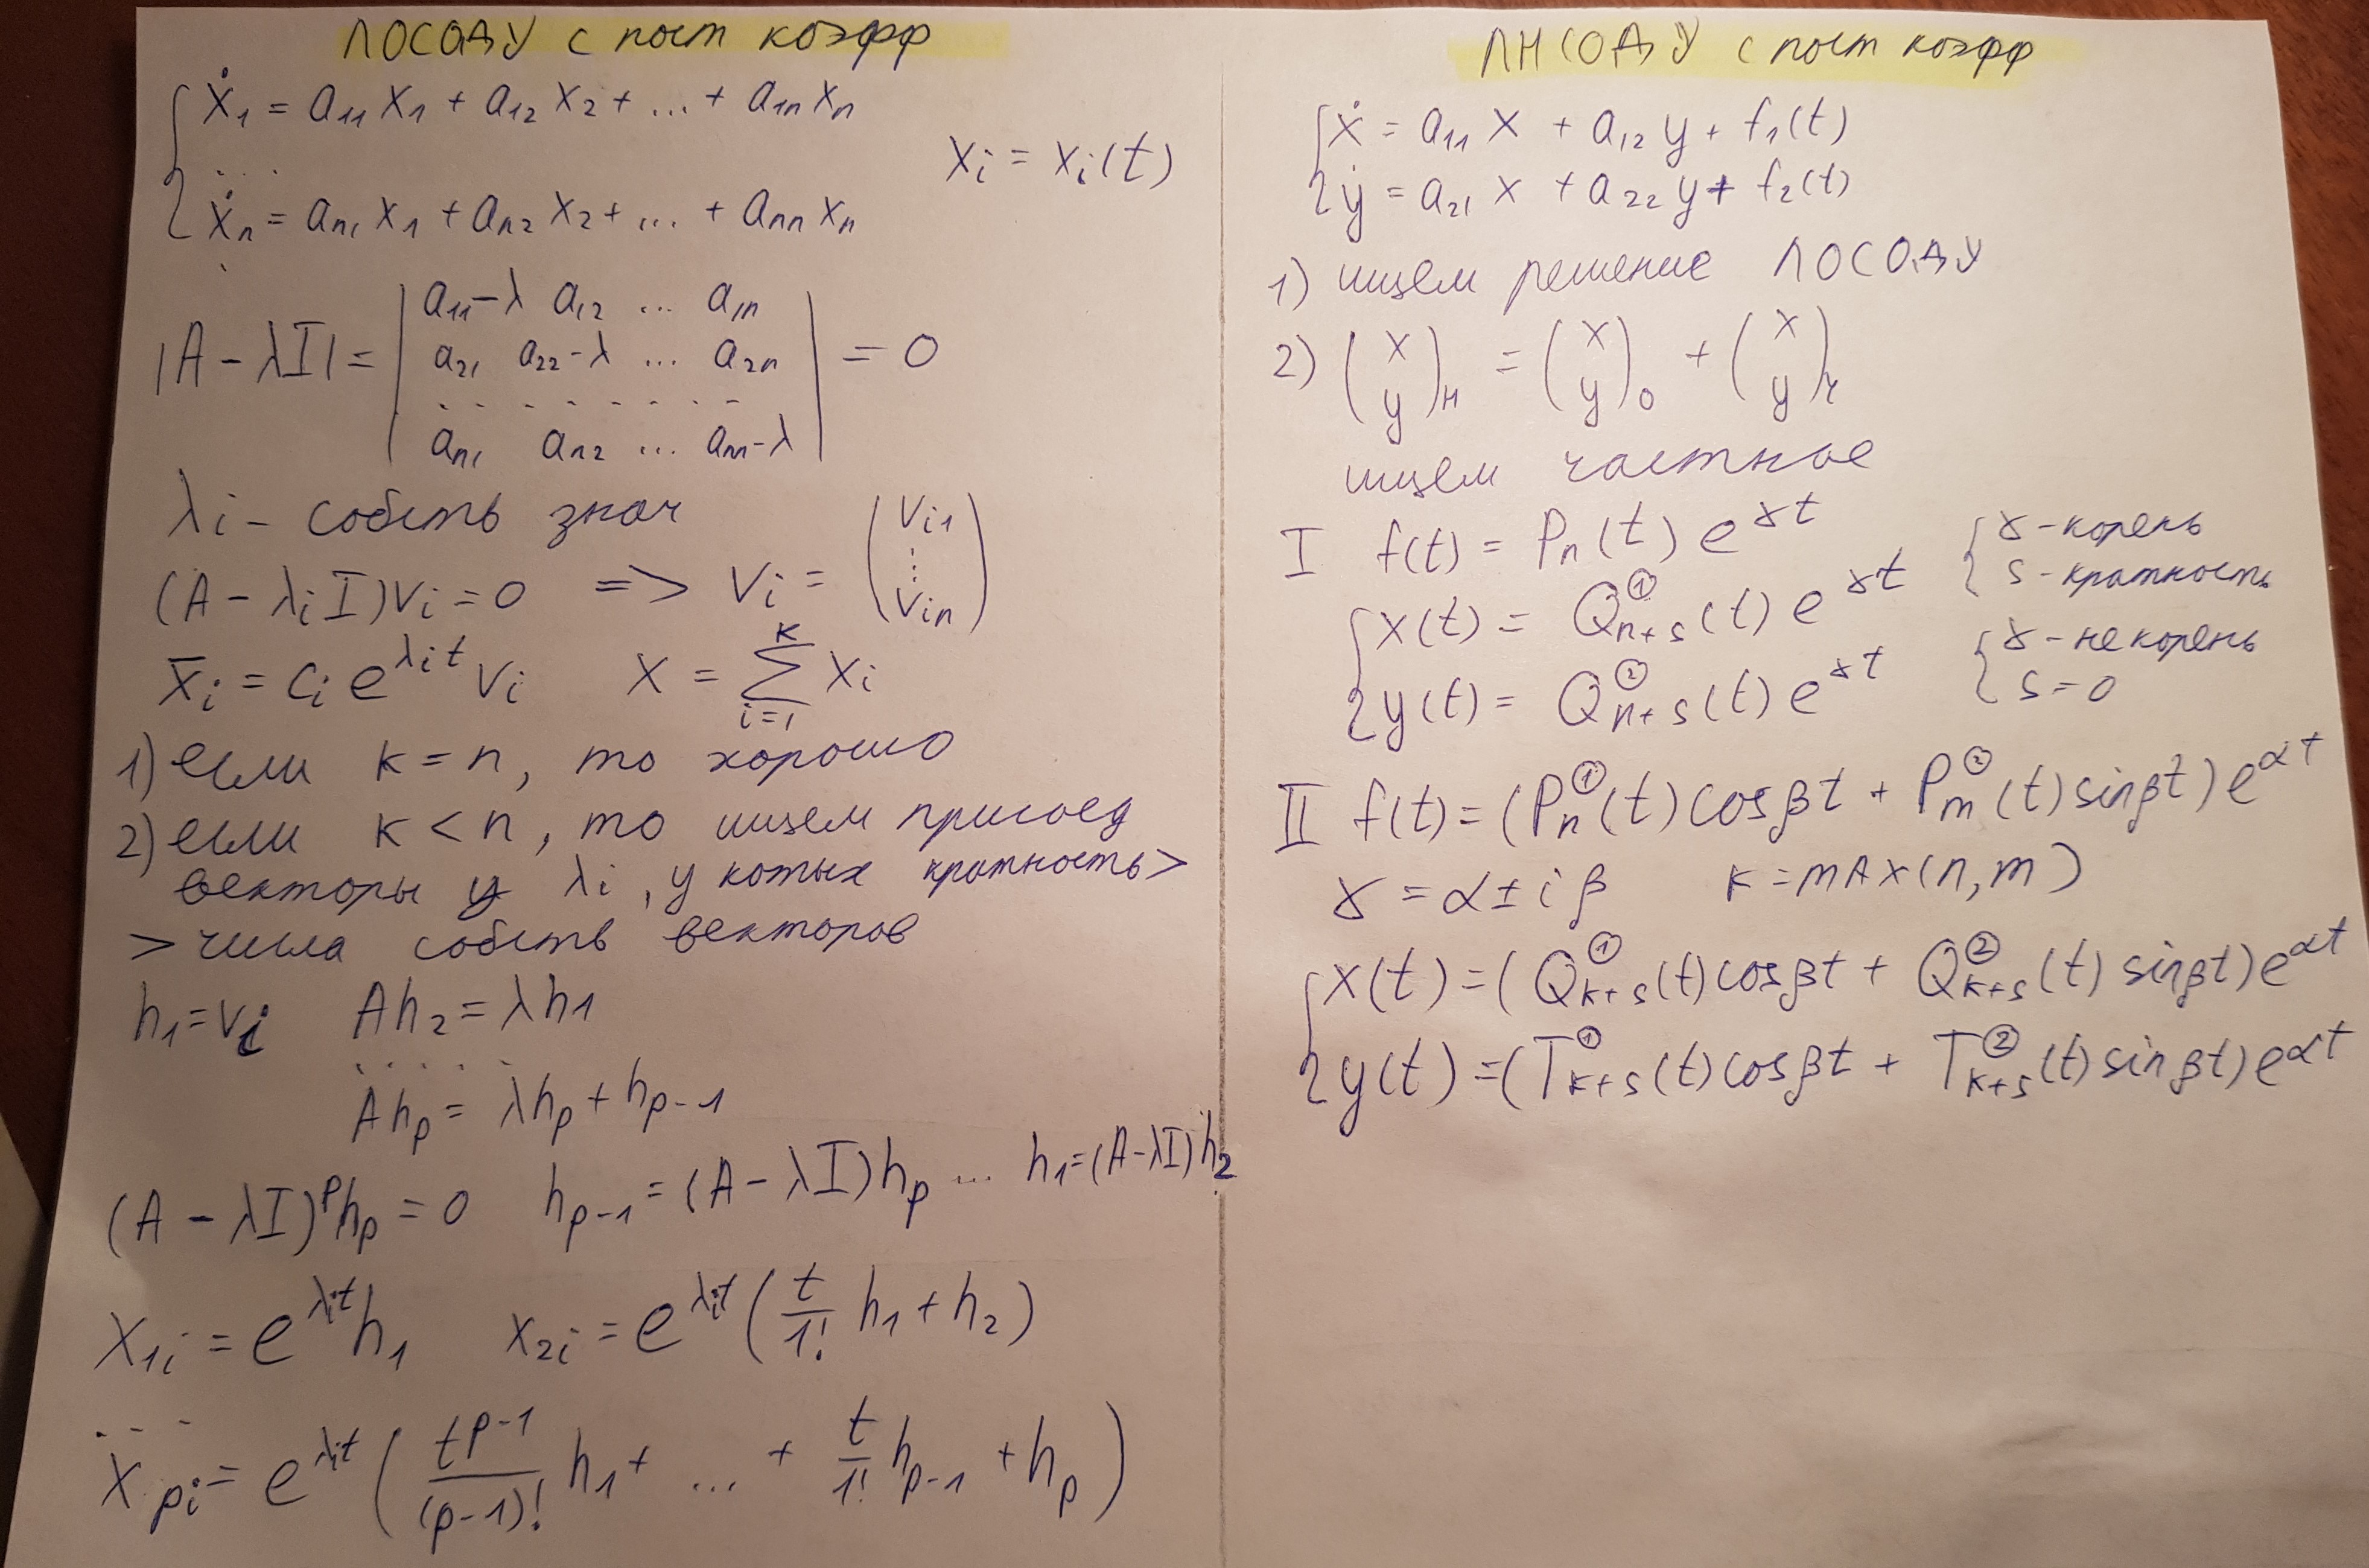 ЛОСОДУ с пост коэфф
ẋ₁ = a₁₁ x₁ + a₁₂ x₂ + ... + a₁ₙ xₙ
. . .
xᵢ = xᵢ(t)
ẋₙ = aₙ₁ x₁ + aₙ₂ x₂ + ... + aₙₙ xₙ
a₁₁-λ a₁₂ ... a₁ₙ
|A - λI| = a₂₁ a₂₂-λ ... a₂ₙ = 0
. . . . . . . . .
aₙ₁ aₙ₂ ... aₙₙ-λ
λi - собств знач
(A - λᵢI)vᵢ = 0 => vᵢ = (vᵢ₁ ⋮ vᵢₙ)
x̄ᵢ = cᵢ e^{λᵢt} vᵢ x = ∑_{i=1}^{k} xᵢ
1) если k = n, то хорошо
2) если k < n, то ищем присоед
векторы у λi, у котых кратность >
> числа собств векторов
h₁ = vᵢ Ah₂ = λh₁
. . . . .
Ahₚ = λhₚ + hₚ₋₁
(A - λI)ᵖhₚ = 0 hₚ₋₁ = (A - λI)hₚ ... h₁ = (A-λI)h₂
x₁ᵢ = e^{λᵢt} h₁ x₂ᵢ = e^{λᵢt} (t/1! h₁ + h₂)
. . .
xₚᵢ = e^{λᵢt} (t^{p-1}/(p-1)! h₁ + ... + t/1! hₚ₋₁ + hₚ)
ЛНСОДУ с пост коэфф
ẋ = a₁₁ x + a₁₂ y + f₁(t)
ẏ = a₂₁ x + a₂₂ y + f₂(t)
1) ищем решение ЛОСОДУ
2) (x y)н = (x y)о + (x y)ч
ищем частное
I f(t) = Pₙ(t) e^{γt}
{ γ - корень
s - кратность
{ x(t) = Q^①ₙ₊ₛ(t) e^{γt}
y(t) = Q^②ₙ₊ₛ(t) e^{γt}
{ γ - не корень
s = 0
II f(t) = (P^①ₙ(t) cosβt + P^②ₘ(t) sinβt) e^{αt}
γ = α ± iβ k = max(n,m)
{ x(t) = (Q^①ₖ₊ₛ(t) cosβt + Q^②ₖ₊ₛ(t) sinβt) e^{αt}
y(t) = (T^①ₖ₊ₛ(t) cosβt + T^②ₖ₊ₛ(t) sinβt) e^{αt}